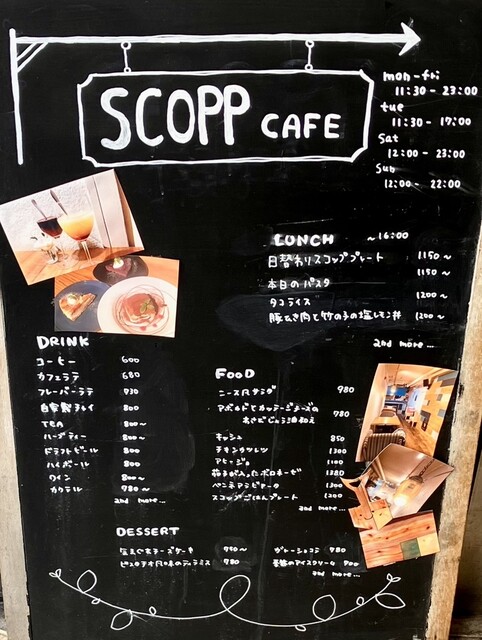 SCOPP CAFE
mon-fri
11:30 - 23:00
tue
11:30 - 17:00
Sat
12:00 - 23:00
Sun
12:00 - 22:00
LUNCH ~16:00
日替わりスコッププレート 1150~
本日のパスタ 1150~
タコライス 1200~
豚ひき肉と竹の子の塩レモン丼 1200~
and more...
DRINK
コーヒー 600
カフェラテ 680
フレーバーラテ 730
自家製チャイ 800
TEA 800~
ハーブティー 800~
ドラフトビール 800
ハイボール 800
ワイン 800~
カクテル 980~
and more...
FOOD
ニース風サラダ 980
アボカドとカッテージチーズの
わさびじょうゆ和え 780
キッシュ 850
チキンカツレツ 1300
アヒージョ 1100
茄子が入ったボロネーゼ 1320
ペンネアラビアータ 1300
スコップごはんプレート 1200
and more...
DESSERT
チーズケーキ 750~
ピスタチオ風味のティラミス 780
ガトーショコラ 780
アイスクリーム
and more...